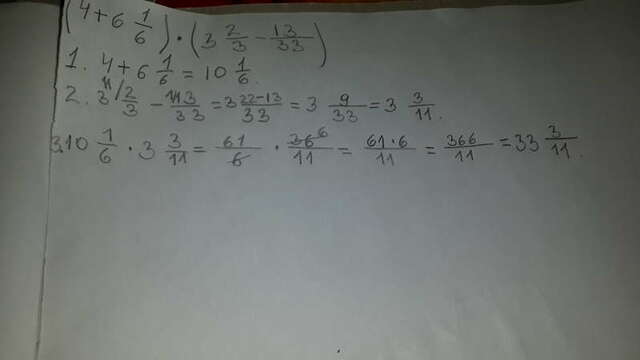 (4+6 1/6)·(3 2/3 - 13/33)
1. 4+6 1/6 = 10 1/6.
2. 3 11/ 2/3 - 13/33 = 3 22-13/33 = 3 9/33 = 3 3/11.
3. 10 1/6 · 3 3/11 = 61/6 · 36 6/11 = 61·6/11 = 366/11 = 33 3/11.